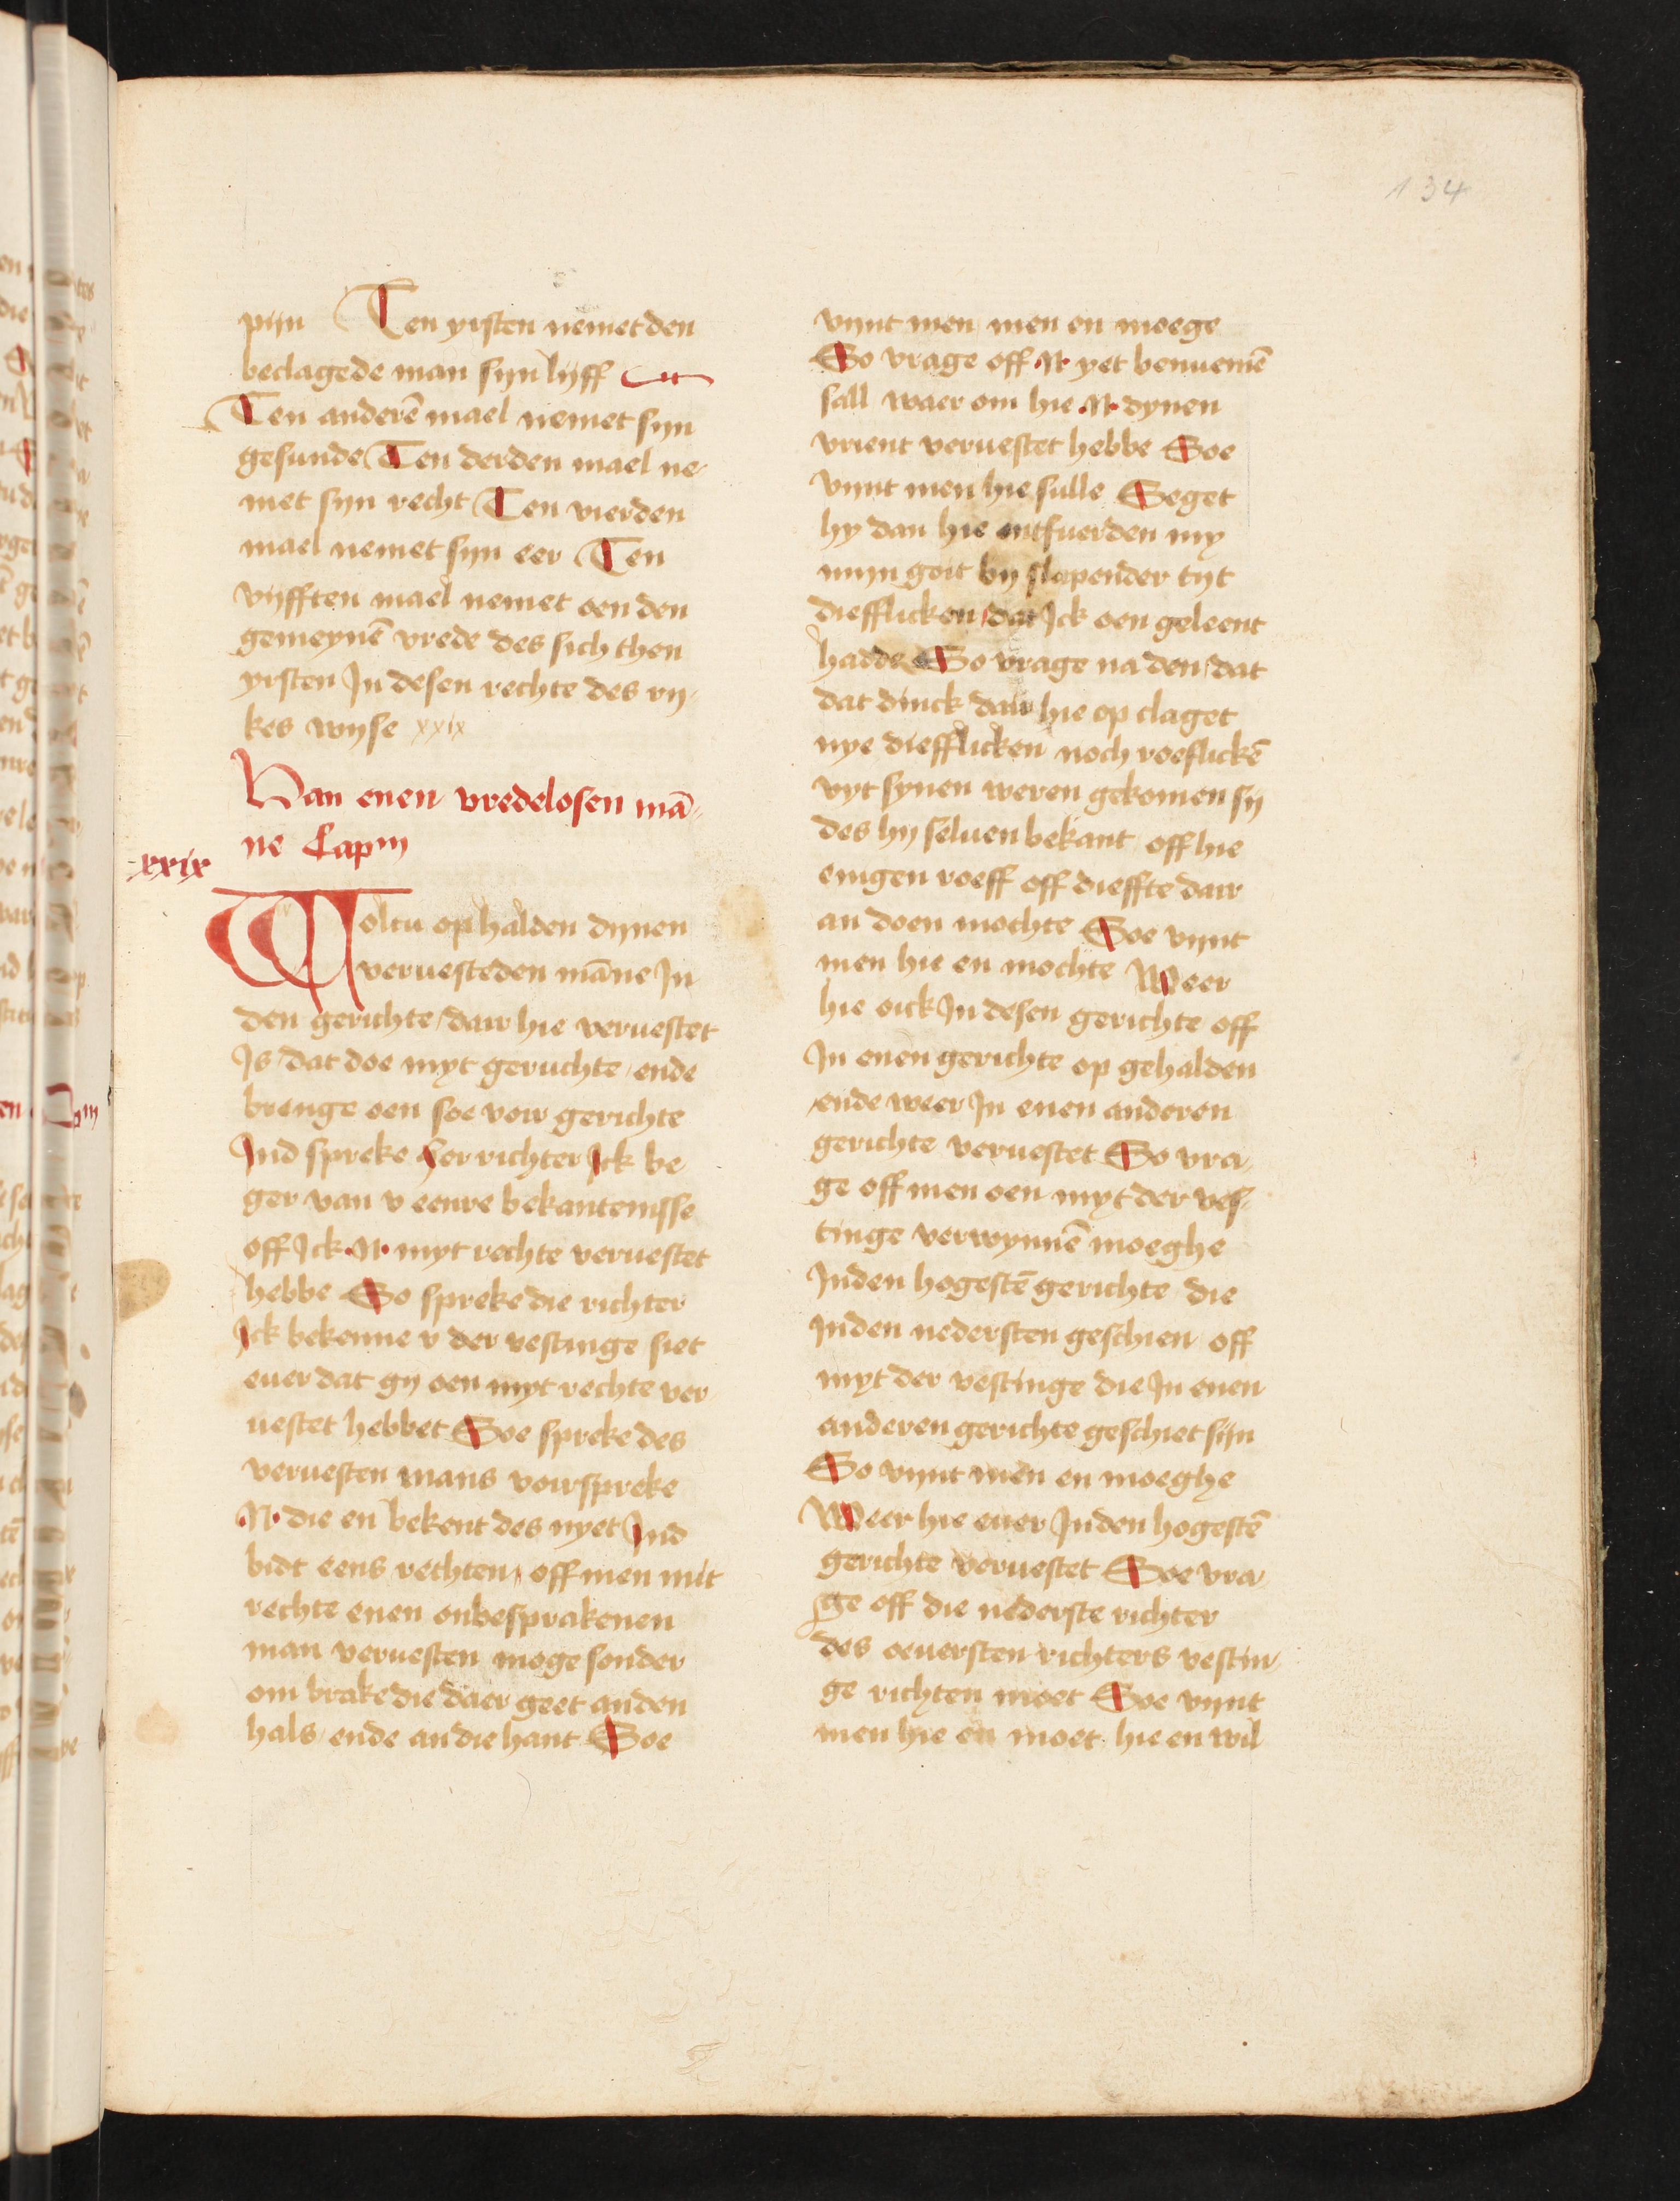 134
pijn Ten yrsten nemet den
beclagede man syn lyff
Ten anderē mael nemet syn
gesunde Ten derden mael ne
met syn recht Ten vierden
mael nemet syn eer Ten
vijfften mael nemet oen den
gemeynē vrede des sich then
yrsten In desen rechte des rij
kes wyse xxix
Van enen vredelosen mā
ne Capm
xxix
Woltu op halden dynen
veruesteden māne In
den gerichte dair hie veruestet
Is dat doe myt geruchte ende
brenge oen soe voir gerichte
Ind spreke Her richter Ick be
ger van v eenre bekantenisse
off Ick .N. myt rechte veruestet
hebbe So spreke die richter
Ick bekenne v der vestinge siet
euer dat gy oen myt rechte ver
uestet hebbet Soe spreke des
veruesten mans voirspreke
.N. die en bekent des nyet Ind
bidt eens rechten off men mit
rechte enen onbesprakenen
man veruesten moge sonder
om brake die daer geet an den
hals ende an die hant Soe
vijnt men men en moege
So vrage off .N. yet benuemē
sall waer om hie .N. dynen
vrient veruestet hebbe Soe
vijnt men hie sulle Seget
hy dan hie entfuerden my
mijn goit by slapender tijt
diefflicken dat Ick oen geleent
hadde So vrage na den dat
dat dinck dair hie op claget
nye diefflicken noch roeflickē
vyt synen weren gekomen sij
des hy seluen bekant off hie
enigen roeff off dieffte dair
an doen mochte Soe vijnt
men hie en mochte Weer
hie oick In desen gerichte off
In enen gerichte op gehalden
ende weer In enen anderen
gerichte veruestet So vra
ge off men oen myt der ves
tinge verwynnē moeghe
In den hogestē gerichte die
In den nedersten geschien off
myt der vestinge die In enen
anderen gerichte geschiet sijn
So vijnt men en moeghe
Weer hie euer In den hogestē
gerichte veruestet Soe vra
ge off die nederste richter
des oeuersten richters vestin
ge richten moet Soe vijnt
men hie en moet hie en wil